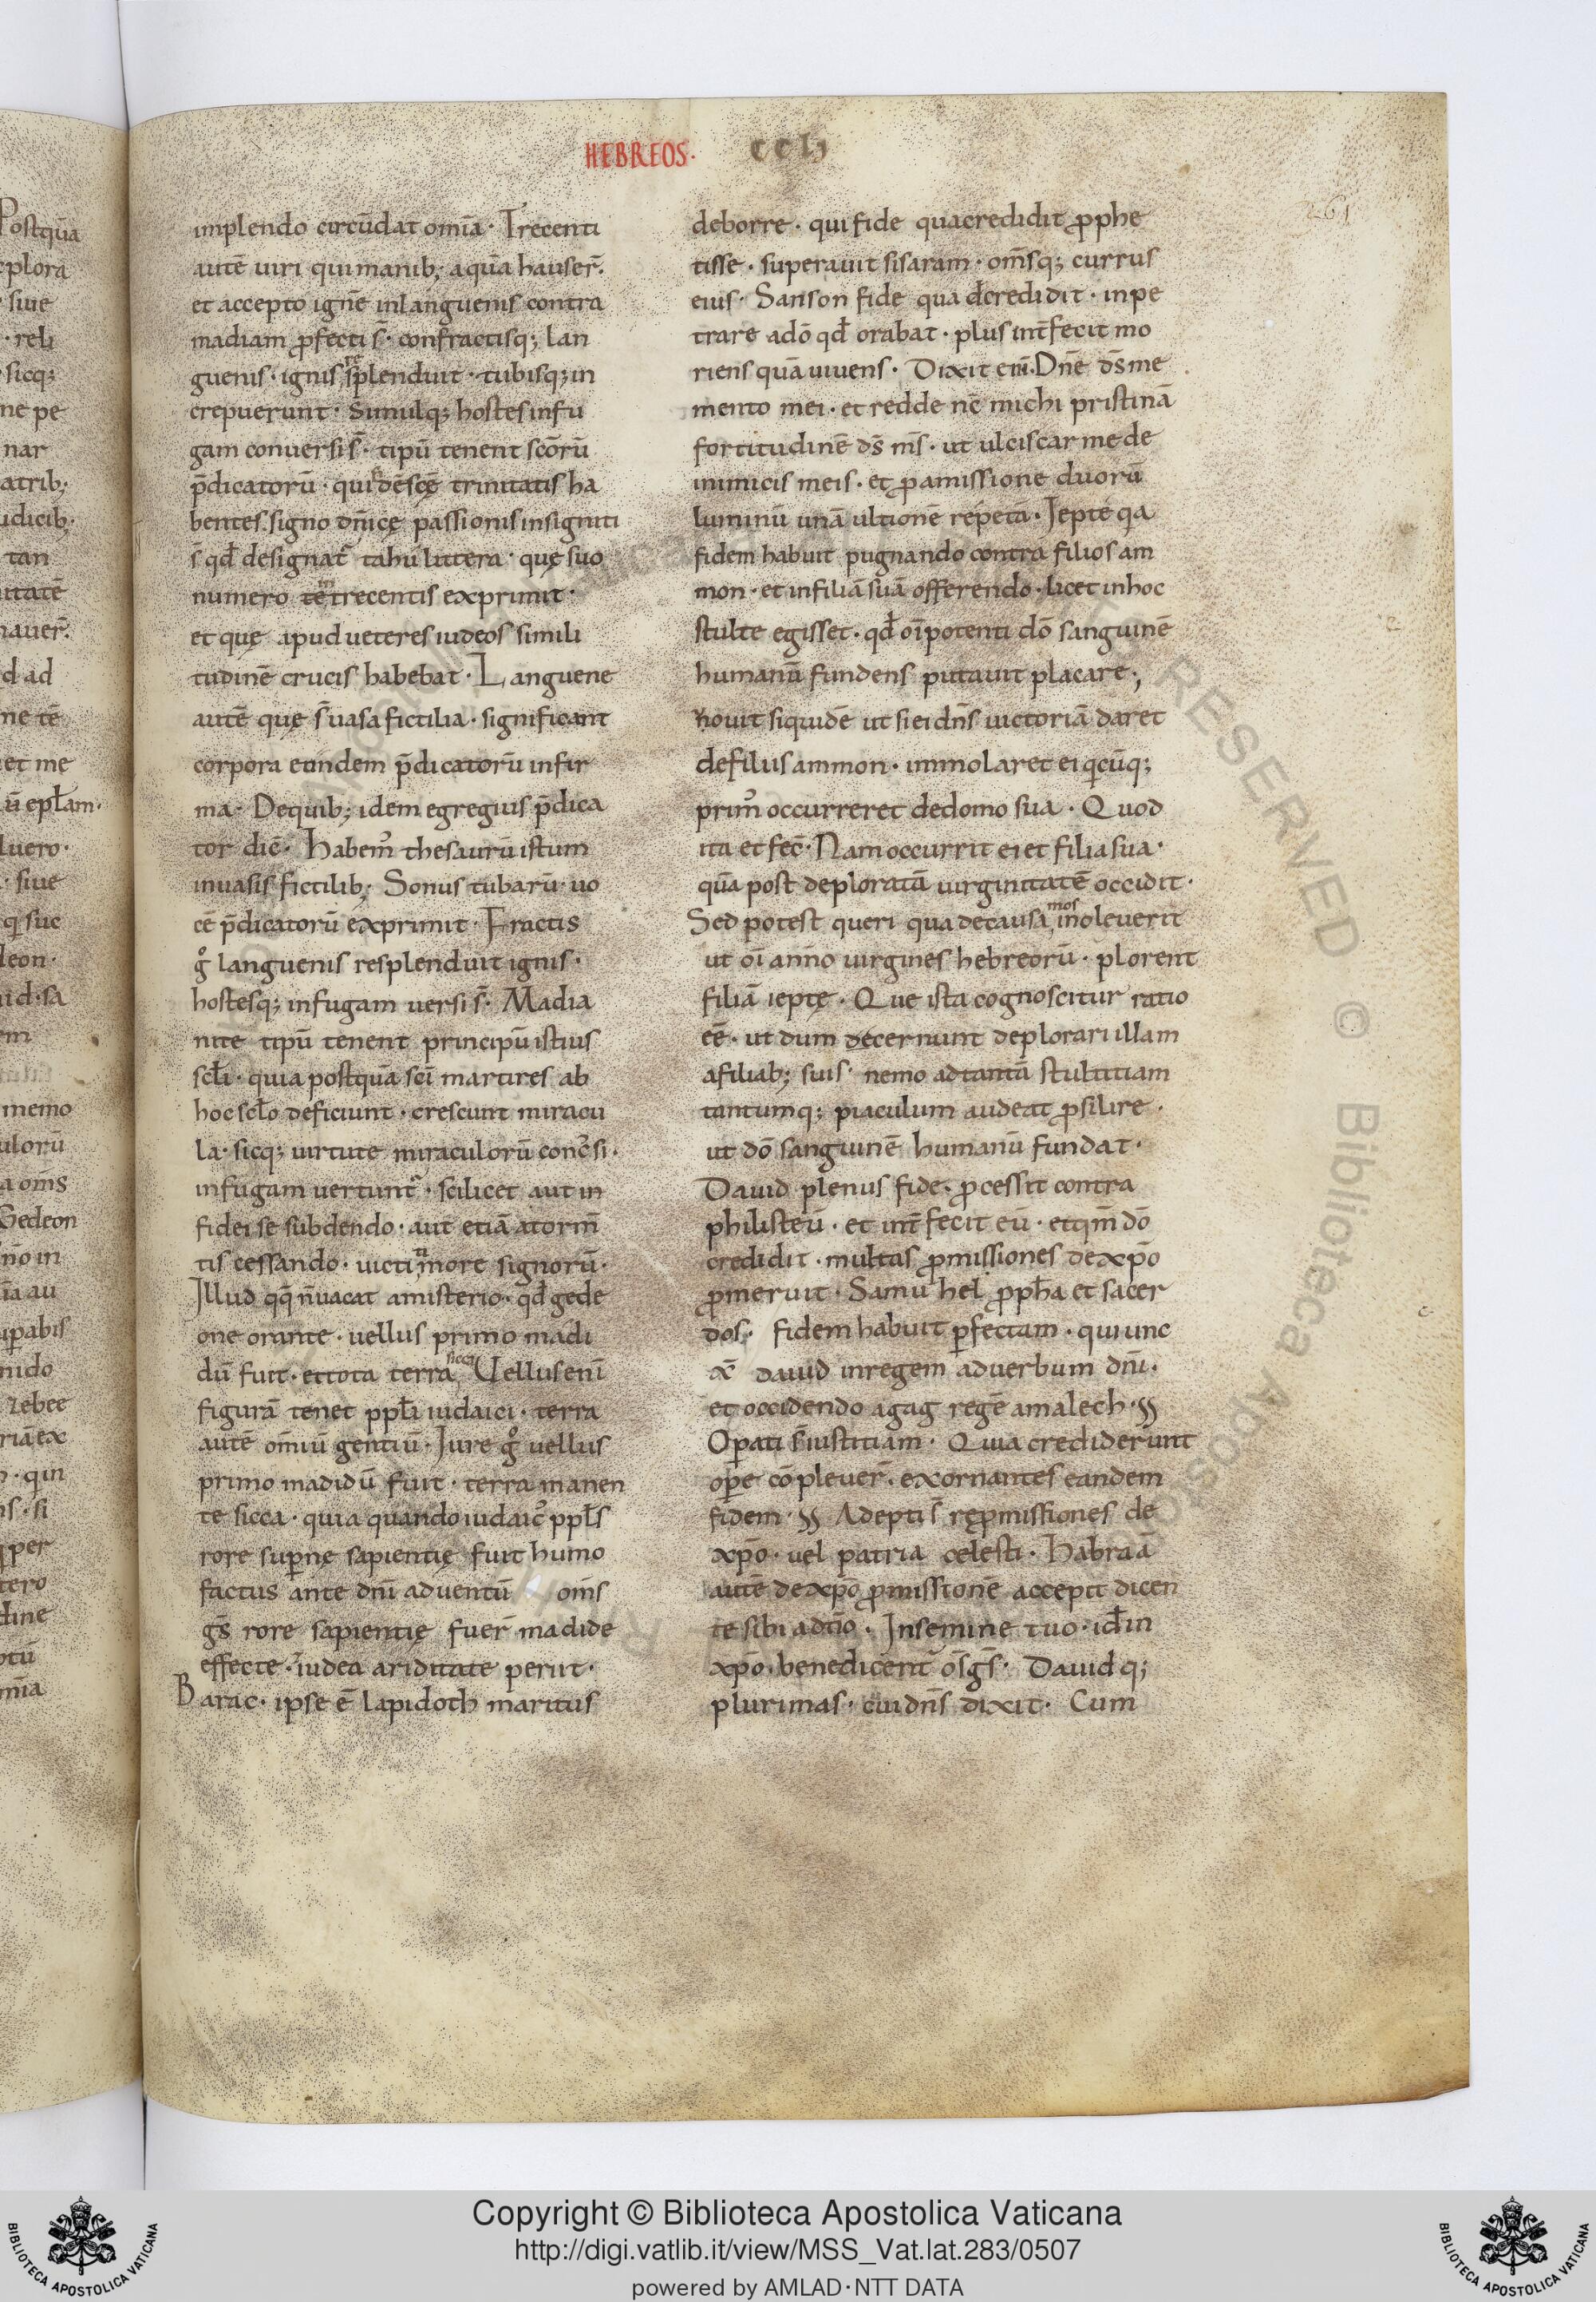 HEBREOS. ccli
261
implendo circūdat om̄ia · Trecenti
autē uiri qui manib; aquā hauser̄.
et accepto ignē in languenis contra
madiam ꝓfecti s̄· confractisq; lan
guenis · ignis resplenduit · tubisq; in
crepuerunt · Simulq; hostes in fu
gam conuersi s̄ · tipū tenent scōrū
p̄dicatorū · qui fidē scę trinitatis ha
bentes. signo dn̄icę passionis insigniti
s̄ qđ designat̄ tahu littera · quę suo
numero trecentis exprimit ·
et quę apud ueteres iudeos simili
tudinē crucis habebat · Languene
autē quę s̄ uasa fictilia · significant
corpora eundem p̄dicatorū infir
ma · De quib; idem egregius p̄dica
tor dic̄ · Habem᾽ thesaurū istum
in uasis fictilib; Sonus tubarū · uo
cē p̄dicatorū exprimit · Fractis
gͦ languenis resplenduit ignis ·
hostesq; in fugam uersi s̄ · Madia
nite tipū tenent principū istius
scl̄i · quia postquā sc̄i martires ab
hoc scl̄o deficiunt · crescunt miracu
la · sicq; uirtute miraculorū conc̄si ·
in fugam uertunt᾽ · scilicet aut in
fidei se subdendo · aut etiā a torm̄
tis cessando · uicti timore signorū ·
Illud qq̄ n̄ uacat a misterio · qđ gede
one orante · uellus primo madi
dū fuit · et tota terra sicca Uellus eni̅
figurā tenet ppl̄i iudaici · terra
autē om̄iū gentiū · Iure gͦ uellus
primo madidū fuit · terra manen
te sicca · quia quando iudaic᾽ ppl̄s
rore sup̄ne sapientię fuit humo
factus ante dn̄i aduentū om̄s
gs̄ rore sapientię fuer̄ madide
effecte · iudea ariditate periit ·
Barac · ipse ē lapidoth maritus
deborre · qui fide qua credidit ꝓphe
tisse · superauit sisaram · om̄sq; currus
eius · Sanson fide qua dc̄redidit · inpe
trare a dō qđ orabat · plus int̄fecit mo
riens quā uiuens · Dixit eni̅. Dn̄e ds̄ me
mento mei · et redde nc̄ michi pristinā
fortitudinē ds̄ ms̄ · ut ulciscar me de
inimicis meis · et ꝓ amissione duorū
luminū unā ultionē repetā · Iepte qa
fidem habuit pugnando contra filios am
mon · et in filiā suā offerendo · licet in hoc
stulte egisset · qđ oi̅potenti dō sanguinē
humanū fundens putauit placare ;
Nouit siquidē ut si ei dn̄s uictoriā daret
de filiis ammon · immolaret ei qicūq;
prim᾽ occurreret de domo sua · Quod
ita et fec̄ · Nam occurrit ei et filia sua ·
quā post deploratā uirginitatē occidit ·
Sed potest queri qua de causa mos inoleuerit
ut oi̅ anno uirgines hebreorū · plorent
filiā ieptę · Que ista cognoscitur ratio
eē · ut dum decernunt deplorari illam
a filiab; suis · nemo ad tantā stultitiam
tantumq; piaculum audeat ꝓsilire ·
ut dō sanguinē humanū fundat ·
Dauid plenus fide · ꝓcessit contra
philisteū · et int̄fecit eū · et qm̄ dō
credidit · multas ꝓmissiones de xp̄o
ꝓmeruit · Samuhel ꝓph̄a et sacer
dos · fidem habuit ꝑfectam · qui unc
x̄ dauid in regem ad uerbum dn̄i ·
et occidendo agag regē amalech ·
Opati s̄ iustitiam · Quia crediderunt
op̄e cōpleuer̄ · exornantes eandem
fidem · Adepti s̄ reꝓmissiones de
xp̄o · uel patria celesti · Habraā
autē de xp̄o ꝓmissionē accepit dicen
te sibi a dn̄o · In semine tuo · id̄ in
xp̄o · benedicent᾽ os̄ gs̄ · Dauid q;
plurimas · cui dn̄s dixit · Cum
Copyright © Biblioteca Apostolica Vaticana
http://digi.vatlib.it/view/MSS_Vat.lat.283/0507
powered by AMLAD·NTT DATA